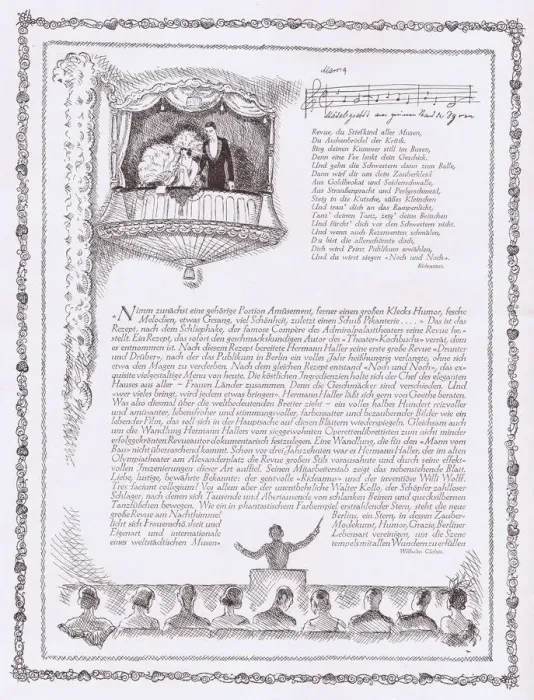 Revue, du Stiefkind aller Musen,
Du Aschenbrödel der Kritik.
Birg deinen Kummer still im Busen,
Denn eine Fee lenkt dein Geschick.
Und gehn die Schwestern dann zum Balle,
Dann wirf dir um dein Zauberkleid
Aus Goldbrokat und Seidenschwalle,
Aus Straußenpracht und Perlgeschmeid,
Steig in die Kutsche, süßes Kleinchen
Und trau' dich an das Rampenlicht,
Tanz' deinen Tanz, zeig' deine Beinchen
Und fürcht' dich vor den Schwestern nicht.
Und wenn auch Rezensenten schmälen,
Du bist die allerschönste doch,
Dich wird Prinz Publikum erwählen,
Und du wirst siegen »Noch und Noch«.
Rideamus.
»Nimm zunächst eine gehörige Portion Amüsement, ferner einen großen Klecks Humor, fesche
Melodien, etwas Gesang, viel Schönheit, zuletzt einen Schuß Pikanterie . . . .« Das ist das
Rezept, nach dem Schliephake, der famose Compère des Admiralpalasttheaters seine Revue her-
stellt. Ein Rezept, das sofort den geschmackskundigen Autor des »Theater-Kochbuchs« verrät, dem
es entnommen ist. Nach diesem Rezept bereitete Hermann Haller seine erste große Revue »Drunter
und Drüber«, nach der das Publikum in Berlin ein volles Jahr heißhungrig verlangte, ohne sich
etwa den Magen zu verderben. Nach dem gleichen Rezept entstand »Noch und Noch«, das ex-
quisite vielgestaltige Menu von heute. Die köstlichen Ingredienzien holte sich der Chef des eleganten
Hauses aus aller – Frauen Länder zusammen. Denn die Geschmäcker sind verschieden. Und
»wer vieles bringt, wird jedem etwas bringen«. Hermann Haller läßt sich gern von Goethe beraten.
Was also diesmal über die weltbedeutenden Bretter zieht – ein volles halbes Hundert reizvoller
und amüsanter, lebensfroher und stimmungsvoller, farbensatter und bezaubernder Bilder wie ein
lebender Film, das soll sich in der Hauptsache auf diesen Blättern wiederspiegeln. Gleichsam auch
um die Wandlung Hermann Hallers vom sieggewohnten Operettenlibrettisten zum nicht minder
erfolggekrönten Revueautor dokumentarisch festzulegen. Eine Wandlung, die für den »Mann vom
Bau« nicht überraschend kommt. Schon vor drei Jahrzehnten war es Hermann Haller, der im alten
Olympiatheater am Alexanderplatz die Revue großen Stils vorausahnte und durch seine effekt-
vollen Inszenierungen dieser Art auffiel. Seinen Mitarbeiterstab zeigt das nebenstehende Blatt.
Liebe, lustige, bewährte Bekannte: der geistvolle »Rideamus« und der inventiöse Willi Wolff.
Tres faciunt collegium! Vor allem aber der unentbehrliche Walter Kollo, der Schöpfer zahlloser
Schlager, nach denen sich Tausende und Abertausende von schlanken Beinen und quecksilbernen
Tanzfüßchen bewegen. Wie ein in phantastischen Farbenspiel erstrahlender Stern, steht die neue
große Revue am Nachthimmel Berlins, ein Stern, in dessen Zauber-
licht sich Frauenschönheit und Modekunst, Humor, Grazie, Berliner
Eigenart und internationale Lebensart vereinigen, um die Szene
eines weltstädtischen Musen- tempels mit allen Wundern zu erfüllen
Wilhelm Clobes.